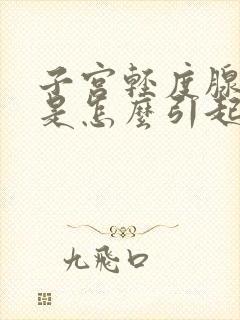 子宫轻度腺
是怎麽引起
九飛口